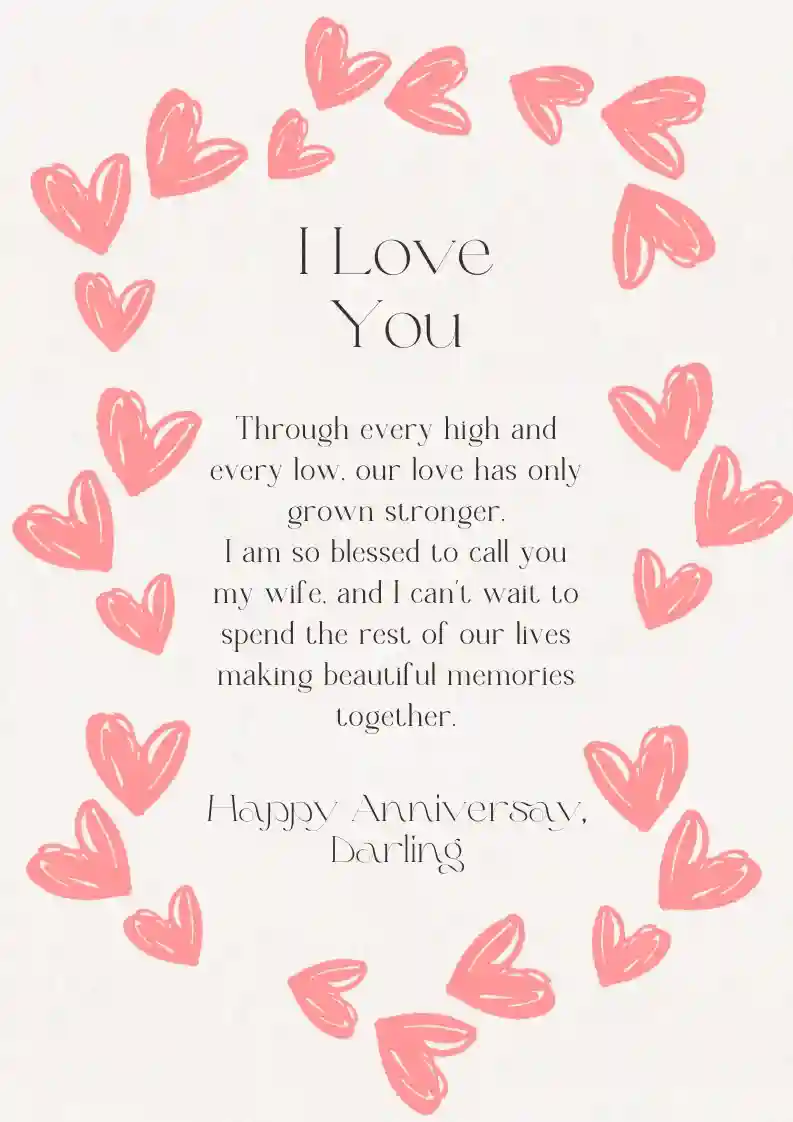 I Love
You
Through every high and
every low, our love has only
grown stronger.
I am so blessed to call you
my wife, and I can't wait to
spend the rest of our lives
making beautiful memories
together.
Happy Anniversay,
Darling